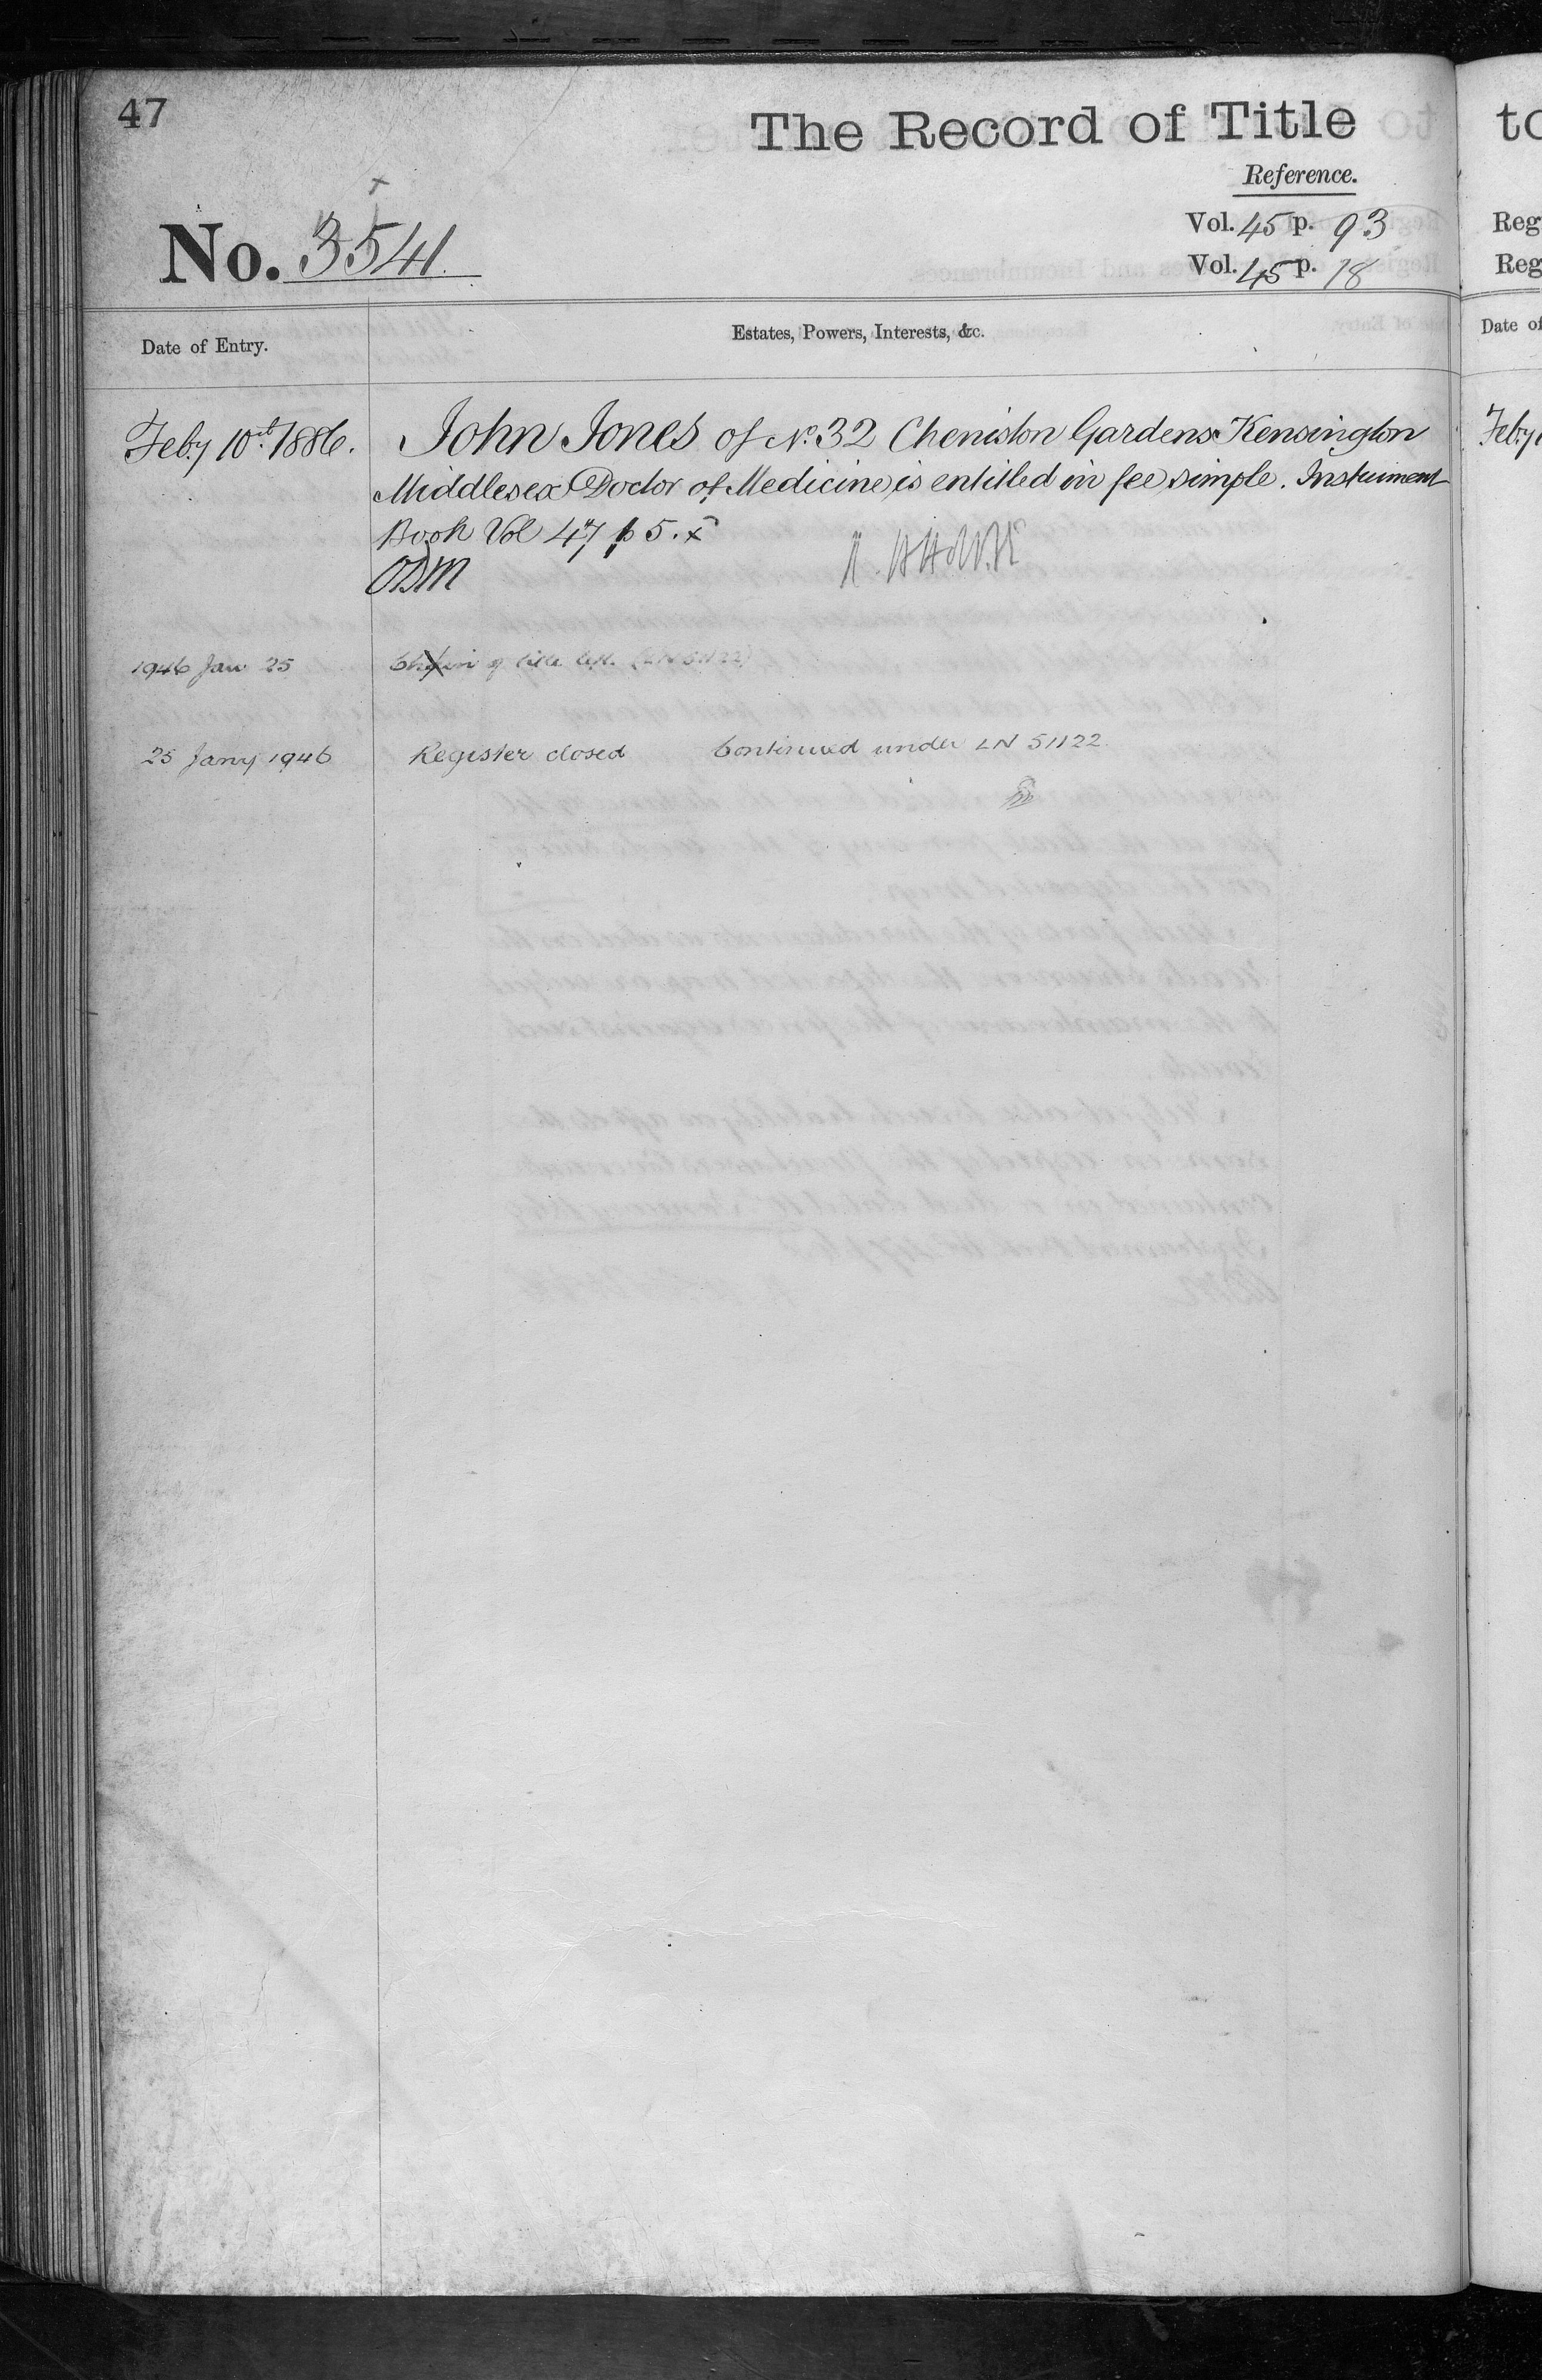 47
The Record of Title
Reference.
No. 3541.
Vol. 45 p. 93
Vol. 45 p. 18
Date of Entry.
Estates, Powers, Interests, &c.
Feby 10th 1886.
John Jones of No. 32 Cheniston Gardens Kensington
Middlesex Doctor of Medicine is entitled in fee simple. Instrument
Book Vol 47 p 5. x
1946 Jan 25
of title
25 Jany 1946
Register closed Continued under LN 51122
to
Reg
Reg
Date of
Feby